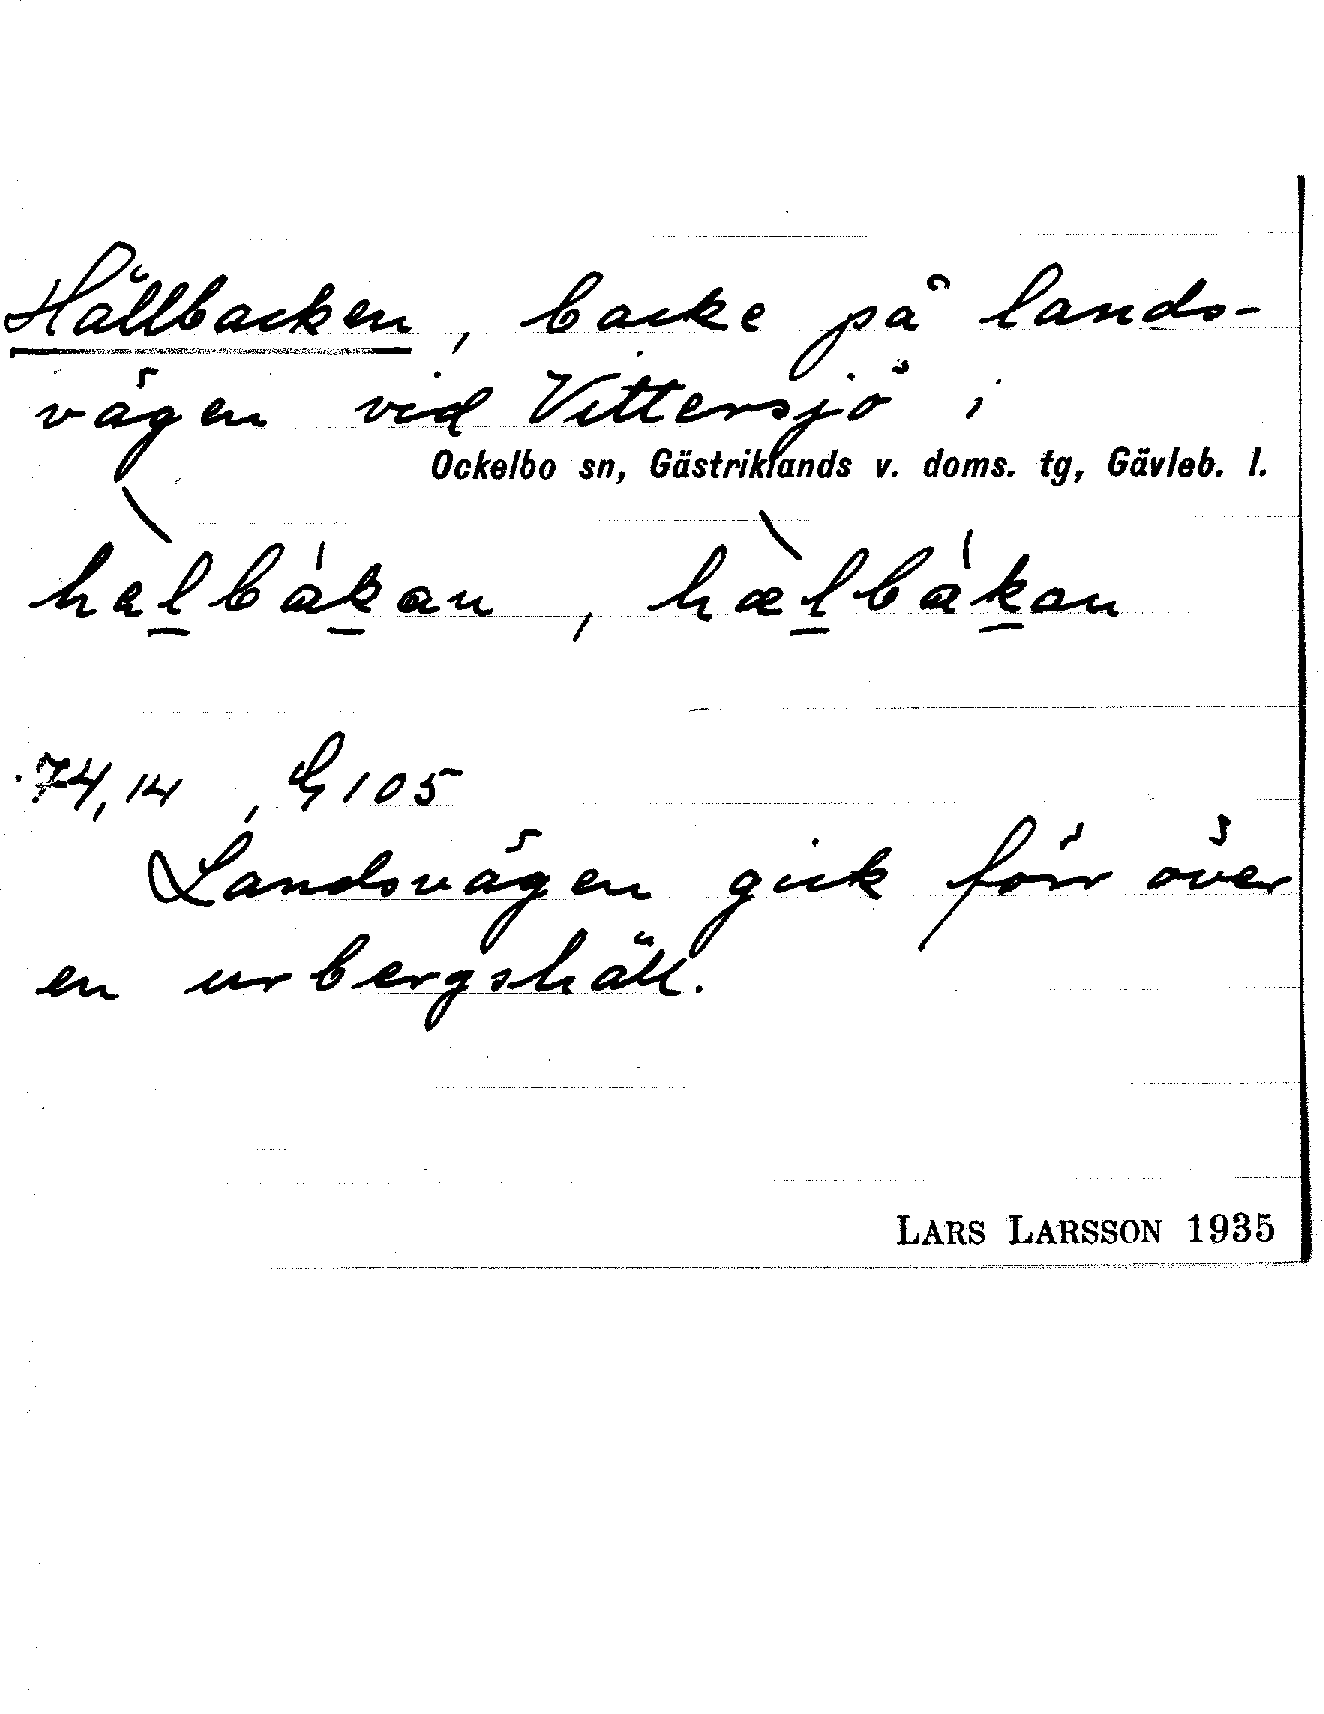 Hällbacken, backe på lands-
vägen vid Vittersjö i
Ockelbo sn, Gästriklands v. doms. tg, Gävleb. l.
hàlbákan, hæ̀lbákan
74,14, G 105
Landsvägen gick förr över
en urbergshäll.
LARS LARSSON 1935